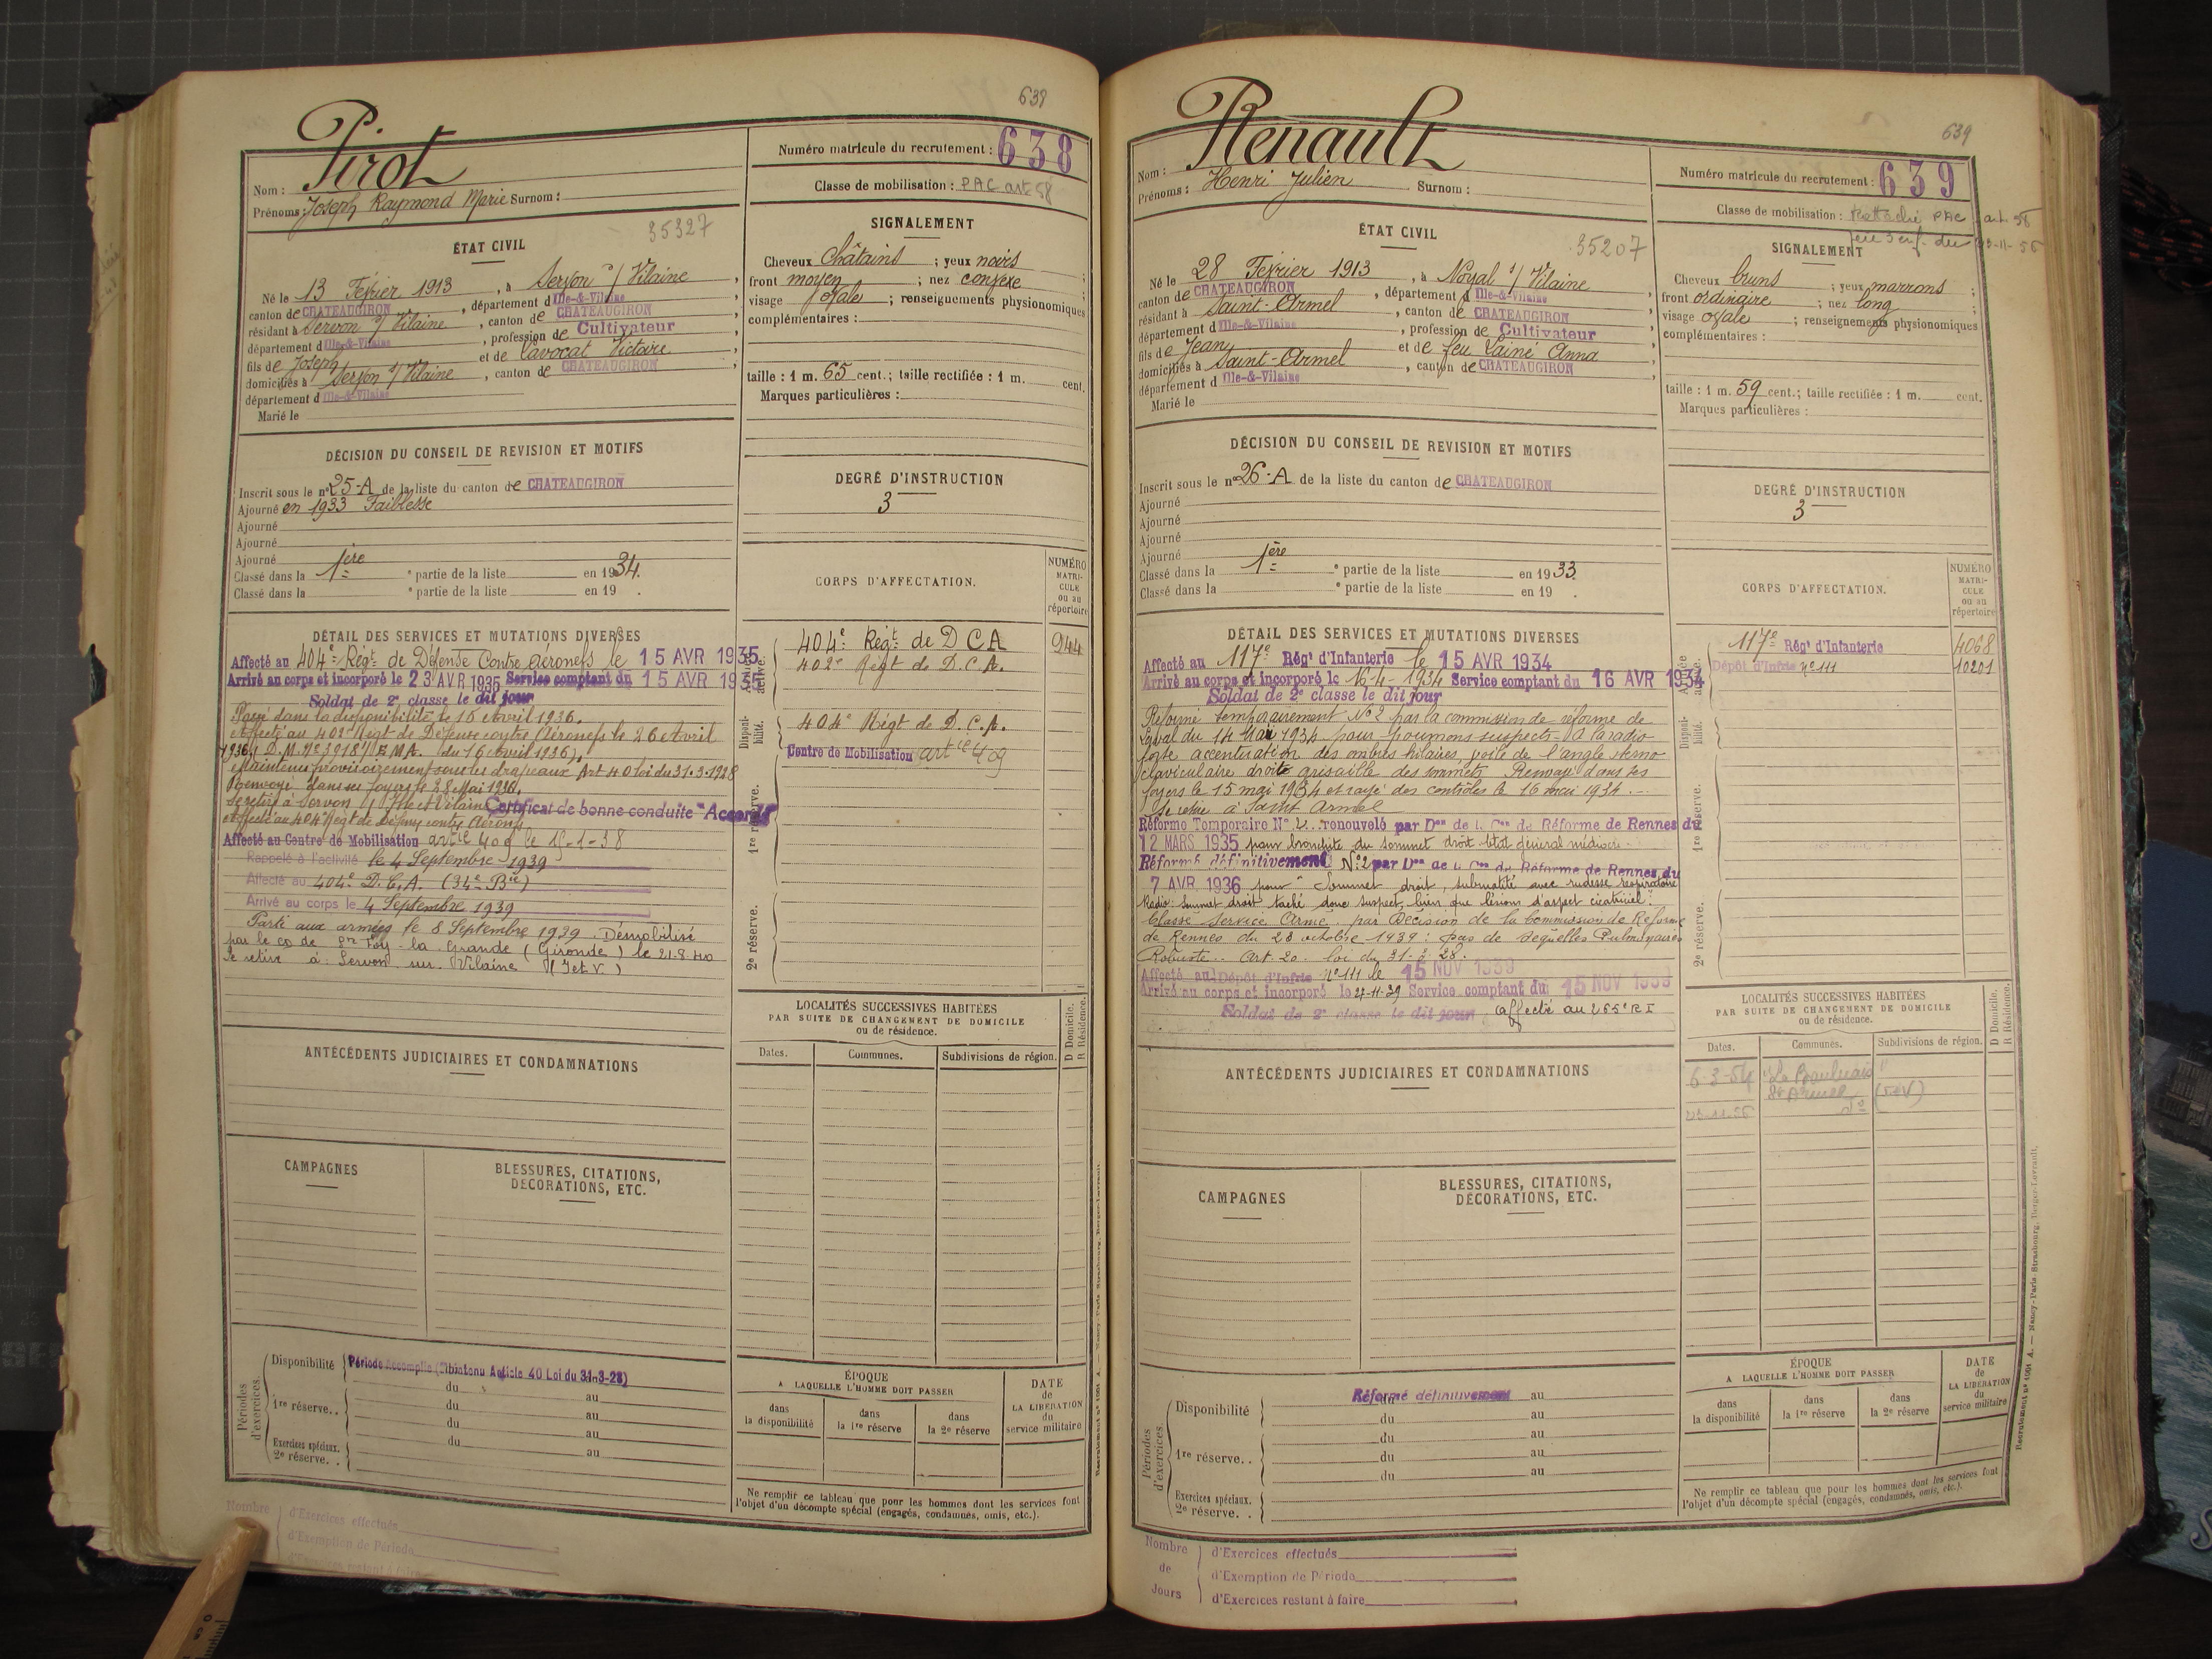 638
Pirot
Nom :
Prénoms : Joseph Raymond Marie Surnom :
Numéro matricule du recrutement : 638
Classe de mobilisation : PAC art 58
35327
ÉTAT CIVIL
Né le 13 Février 1913, à Servon s/ Vilaine,
canton de CHATEAUGIRON, département d Ille-&-Vilaine,
résidant à Servon s/ Vilaine, canton de CHATEAUGIRON,
département d Ille-&-Vilaine, profession de Cultivateur
fils de Joseph et de Lavocat Victoire,
domiciliés à Servon s/ Vilaine, canton de CHATEAUGIRON,
département d Ille-&-Vilaine
Marié le
SIGNALEMENT
Cheveux Châtains ; yeux noirs ;
front moyen ; nez convexe ;
visage ovale ; renseignements physionomiques
complémentaires :
taille : 1 m. 65 cent.; taille rectifiée : 1 m. cent.
Marques particulières :
DÉCISION DU CONSEIL DE REVISION ET MOTIFS
Inscrit sous le n° 25-A de la liste du canton de CHATEAUGIRON
Ajourné en 1933 Faiblesse
Ajourné
Ajourné
Ajourné
Classé dans la 1ère e partie de la liste en 1934.
Classé dans la e partie de la liste en 19 .
DEGRÉ D'INSTRUCTION
3
CORPS D'AFFECTATION.
NUMÉRO MATRI-CULE ou au répertoire
404e Régt de D C A 944
402e Régt de D.C.A.
404e Régt de D.C.A.
Centre de Mobilisation artie 409
Armée active.
Disponi-bilité.
1re réserve.
2e réserve.
DÉTAIL DES SERVICES ET MUTATIONS DIVERSES
Affecté au 404e Régt de Défense Contre Aéronefs le 15 AVR 1935
Arrivé au corps et incorporé le 23 AVR 1935 Service comptant du 15 AVR 1935
Soldat de 2e classe le dit jour
Passé dans la disponibilité le 15 Avril 1936.
Affecté au 402e Régt de Défense contre Aéronefs le 26 Avril
1936 (D.M. N° 3918/ E.M.A. du 16 Avril 1936).
Maintenu provisoirement sous les drapeaux Art 40 loi du 31-3-1928
Renvoyé dans ses foyers le 28 Mai 1936.
Se retire à Servon (Ille et Vilaine Certificat de bonne conduite "Accordé"
Affecté au 404e Régt de Défense contre Aéronefs
Affecté au Centre de Mobilisation artie 409 le 15-1-38
Rappelé à l'activité le 4 Septembre 1939
Affecté au 404e D.C.A. (34e Bie)
Arrivé au corps le 4 Septembre 1939
Parti aux armées le 8 Septembre 1939. Démobilisé
par le CD de Ste Foy-la Grande (Gironde) le 21.8.40
Se retire à Servon sur Vilaine (I et V.)
LOCALITÉS SUCCESSIVES HABITÉES
PAR SUITE DE CHANGEMENT DE DOMICILE
ou de résidence.
Dates. Communes. Subdivisions de région. D Domicile. R Résidence.
ANTÉCÉDENTS JUDICIAIRES ET CONDAMNATIONS
CAMPAGNES
BLESSURES, CITATIONS, DÉCORATIONS, ETC.
Périodes d'exercices.
Disponibilité Période Accomplie (Maintenu Article 40 Loi du 31-3-28)
du au
1re réserve.. du au
du au
du au
Exercices spéciaux.
2e réserve. .
ÉPOQUE
A LAQUELLE L'HOMME DOIT PASSER
dans la disponibilité
dans la 1re réserve
dans la 2e réserve
DATE de LA LIBÉRATION du service militaire
Ne remplir ce tableau que pour les hommes dont les services font
l'objet d'un décompte spécial (engagés, condamnés, omis, etc.).
Nombre
d'Exercices effectués
d'Exemption de Période
d'Exercices restant à faire
639
Renault
Nom :
Prénoms : Henri Julien Surnom :
Numéro matricule du recrutement : 639
Classe de mobilisation : Rattaché PAC art. 58
35207
ÉTAT CIVIL
Né le 28 Février 1913, à Noyal s/ Vilaine
canton de CHATEAUGIRON, département d Ille-&-Vilaine
résidant à Saint-Armel, canton de CHATEAUGIRON
département d Ille-&-Vilaine, profession de Cultivateur
fils de Jean et de feu Lainé Anna
domiciliés à Saint-Armel, canton de CHATEAUGIRON,
département d Ille-&-Vilaine
Marié le
SIGNALEMENT
Cheveux bruns ; yeux marrons ;
front ordinaire ; nez long ;
visage ovale ; renseignements physionomiques
complémentaires :
taille : 1 m. 59 cent.; taille rectifiée : 1 m. cent.
Marques particulières :
DÉCISION DU CONSEIL DE REVISION ET MOTIFS
Inscrit sous le n° 26-A de la liste du canton de CHATEAUGIRON
Ajourné
Ajourné
Ajourné
Ajourné
Classé dans la 1ère e partie de la liste en 1933.
Classé dans la e partie de la liste en 19 .
DEGRÉ D'INSTRUCTION
3
CORPS D'AFFECTATION.
NUMÉRO MATRI-CULE ou au répertoire
117e Régt d'Infanterie 4068
Dépôt d'Infrie N° 111 10201
Armée active.
Disponi-bilité.
1re réserve.
2e réserve.
DÉTAIL DES SERVICES ET MUTATIONS DIVERSES
Affecté au 117e Régt d'Infanterie le 15 AVR 1934
Arrivé au corps et incorporé le 16-4-1934 Service comptant du 16 AVR 1934
Soldat de 2e classe le dit jour
Réformé temporairement N°2 par la commission de réforme de
Laval du 14 Mai 1934 pour poumons suspects - à la radio
forte accentuation des ombres hilaires, voile de l'angle sterno
claviculaire droite grisaille des sommets. Renvoyé dans ses
foyers le 15 mai 1934 et rayé des contrôles le 16 mai 1934.
Se retire à Saint Armel
Réforme Temporaire N° 2 renouvelé par Don de la Con de Réforme de Rennes du
12 MARS 1935 pour bronchite du sommet droit état général médiocre
Réformé définitivement N°2 par Don de la Con de Réforme de Rennes du
7 AVR 1936 pour "Sommet droit, submatité avec rudesse respiratoire
Radio: Sommet droit taché donc suspect, bien que lésions d'aspect cicatriciel".
Classé Service Armé par Décision de la Commission de Réforme
de Rennes du 20 octobre 1939 : pas de séquelles Pulmonaires
Robuste. Art. 20. loi du 31-3-28.
Affecté au Dépôt d'Infrie N° 111 le 15 NOV 1939
Arrivé au corps et incorporé le 27-11-39 Service comptant du 15 NOV 1939
Soldat de 2e classe le dit jour affecté au 265e R I
LOCALITÉS SUCCESSIVES HABITÉES
PAR SUITE DE CHANGEMENT DE DOMICILE
ou de résidence.
Dates. Communes. Subdivisions de région. D Domicile. R Résidence.
6-3-54
St Armel (I et V)
ANTÉCÉDENTS JUDICIAIRES ET CONDAMNATIONS
CAMPAGNES
BLESSURES, CITATIONS, DÉCORATIONS, ETC.
Périodes d'exercices
Disponibilité Réformé définitivement au
du au
du au
1re réserve.. du au
du au
Exercices spéciaux.
2e réserve. .
ÉPOQUE
A LAQUELLE L'HOMME DOIT PASSER
dans la disponibilité
dans la 1re réserve
dans la 2e réserve
DATE de LA LIBÉRATION du service militaire
Ne remplir ce tableau que pour les hommes dont les services font
l'objet d'un décompte spécial (engagés, condamnés, omis, etc.).
Nombre de Jours
d'Exercices effectués
d'Exemption de Période
d'Exercices restant à faire
Recrutement n° 1001 A. — Nancy-Paris-Strasbourg, Berger-Levrault.